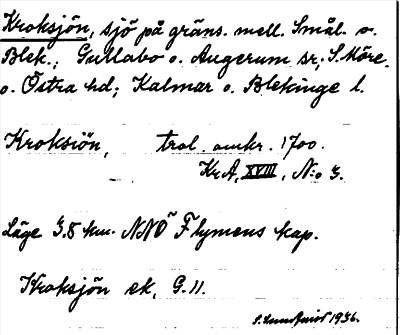 Kroksjön, sjö på gräns. mell. Smål. o.
Blek.; Gullabo o. Augerum sr; S. Möre.
o. Östra hd; Kalmar o. Blekinge l.
Kroksiön, trol. omkr. 1700.
KrA, XVIII, N:o 3.
Läge 3.8 km. NNÖ Flymens kap.
Kroksjön ek. G. 11.
S. Lundqvist 1936.